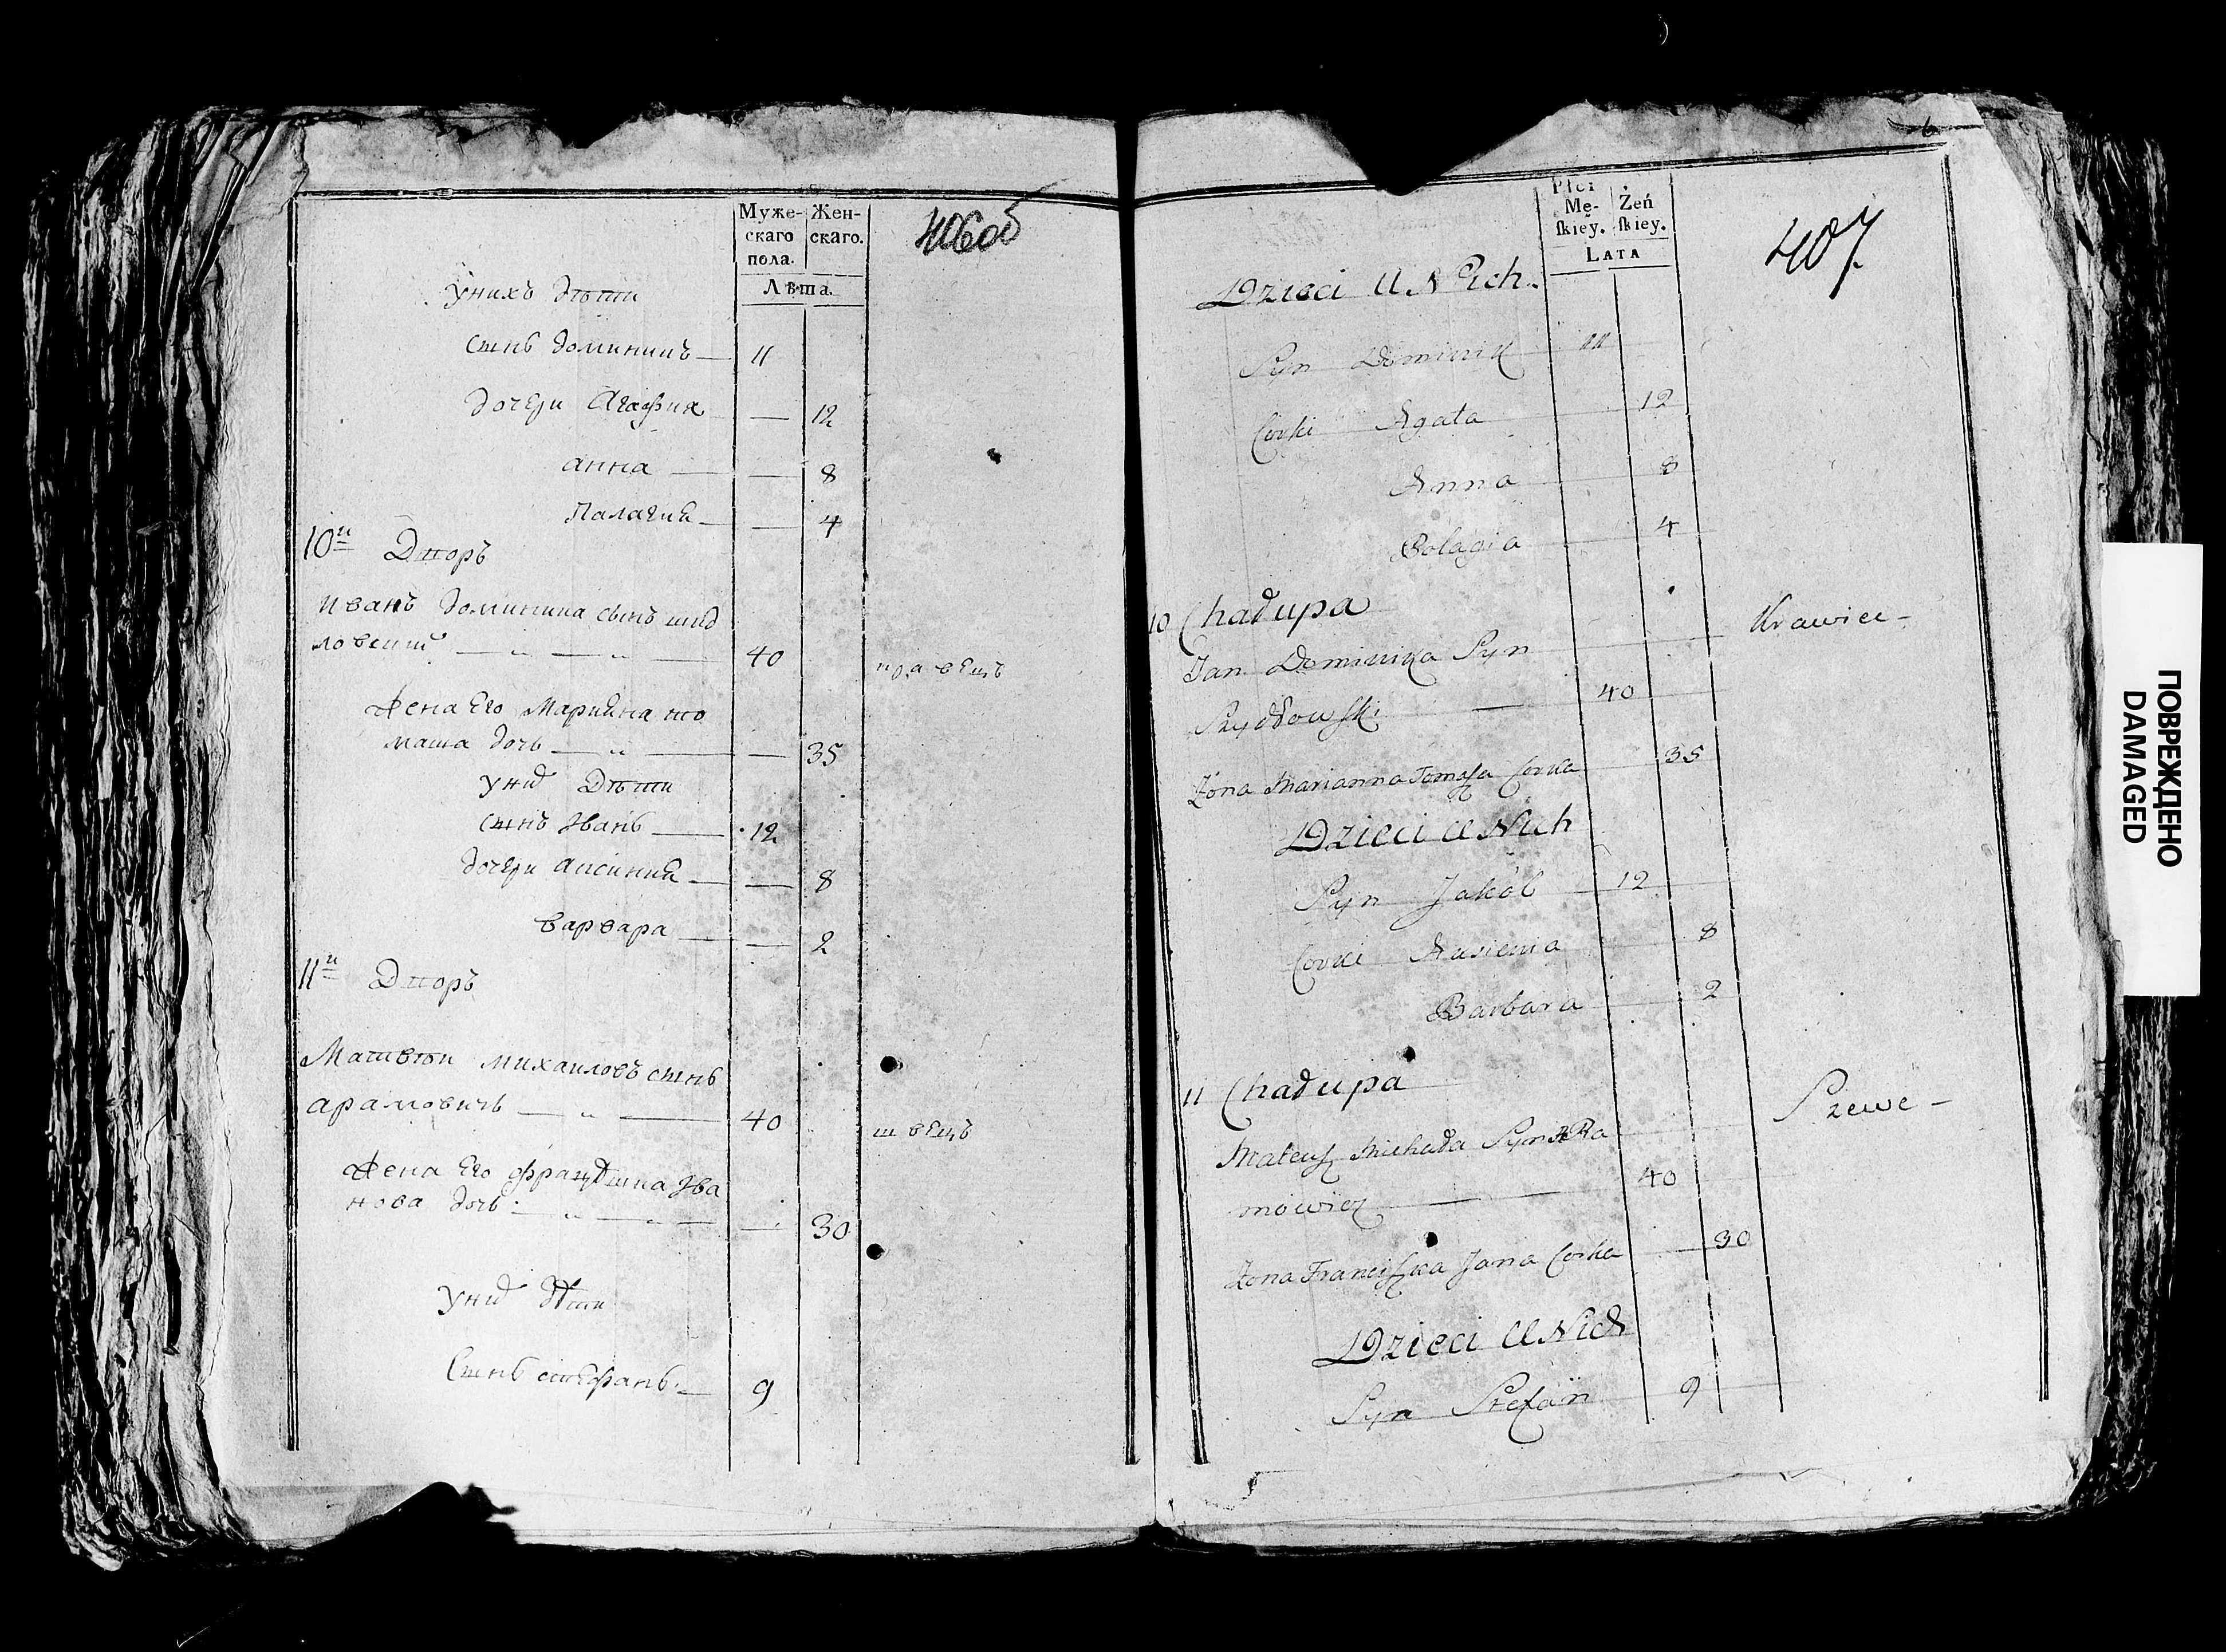 Муже-
скаго
пола.
Жен-
скаго.
Лѣта.
406об
Унихъ Дѣти
сынъ доминикъ — 11
дочери Агафия — 12
анна — — 8
Палагия — — 4
10й Дворъ
Иванъ доминика сынъ шид
ловский — „ — „ — 40 кравецъ
Жена Его Марияна то
маша дочь — „ — — 35
Уних Дѣти
сынъ Иванъ — 12
дочери Аксиния — — 8
варвара — — 2
11й Дворъ
Матвѣи михаиловъ сынъ
арамовичь — „ — 40 швецъ
Жена Его францишка Ива
нова дочь — „ — „ — — 30
Уних Дѣти
Сынъ стефанъ — 9
Płci
Mę-
ſkiey.
Żeń
ſkiey.
LATA
407
Dzieci U Nich
Syn Dominik 11
Corki Agata 12
Anna 8
Polagia 4
10 Chałupa
Krawiec —
Jan Dominika Syn
Szydłowſki — 40
Żona Marianna Tomaſza Corka 35
Dzieci U Nich
Syn Jakób 12
Corki Ausienia 8
Barbara 2
11 Chałupa
Szewc —
Mateuſz Michała Syn ARa
mowicz — 40
Żona Franciſzka Jana Corka 30
Dzieci U Nich
Syn Stefan 9
ПОВРЕЖДЕНО
DAMAGED